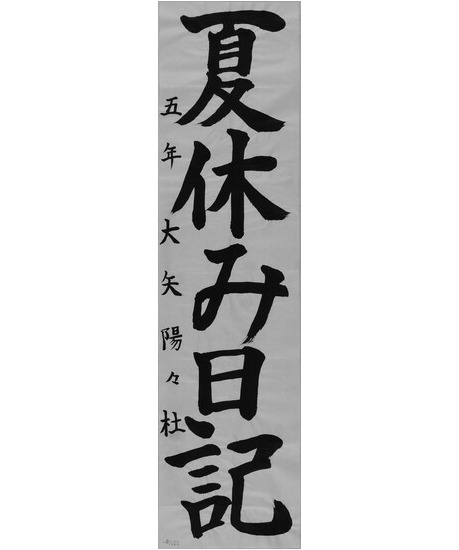 夏休み日記
五年大矢陽々杜